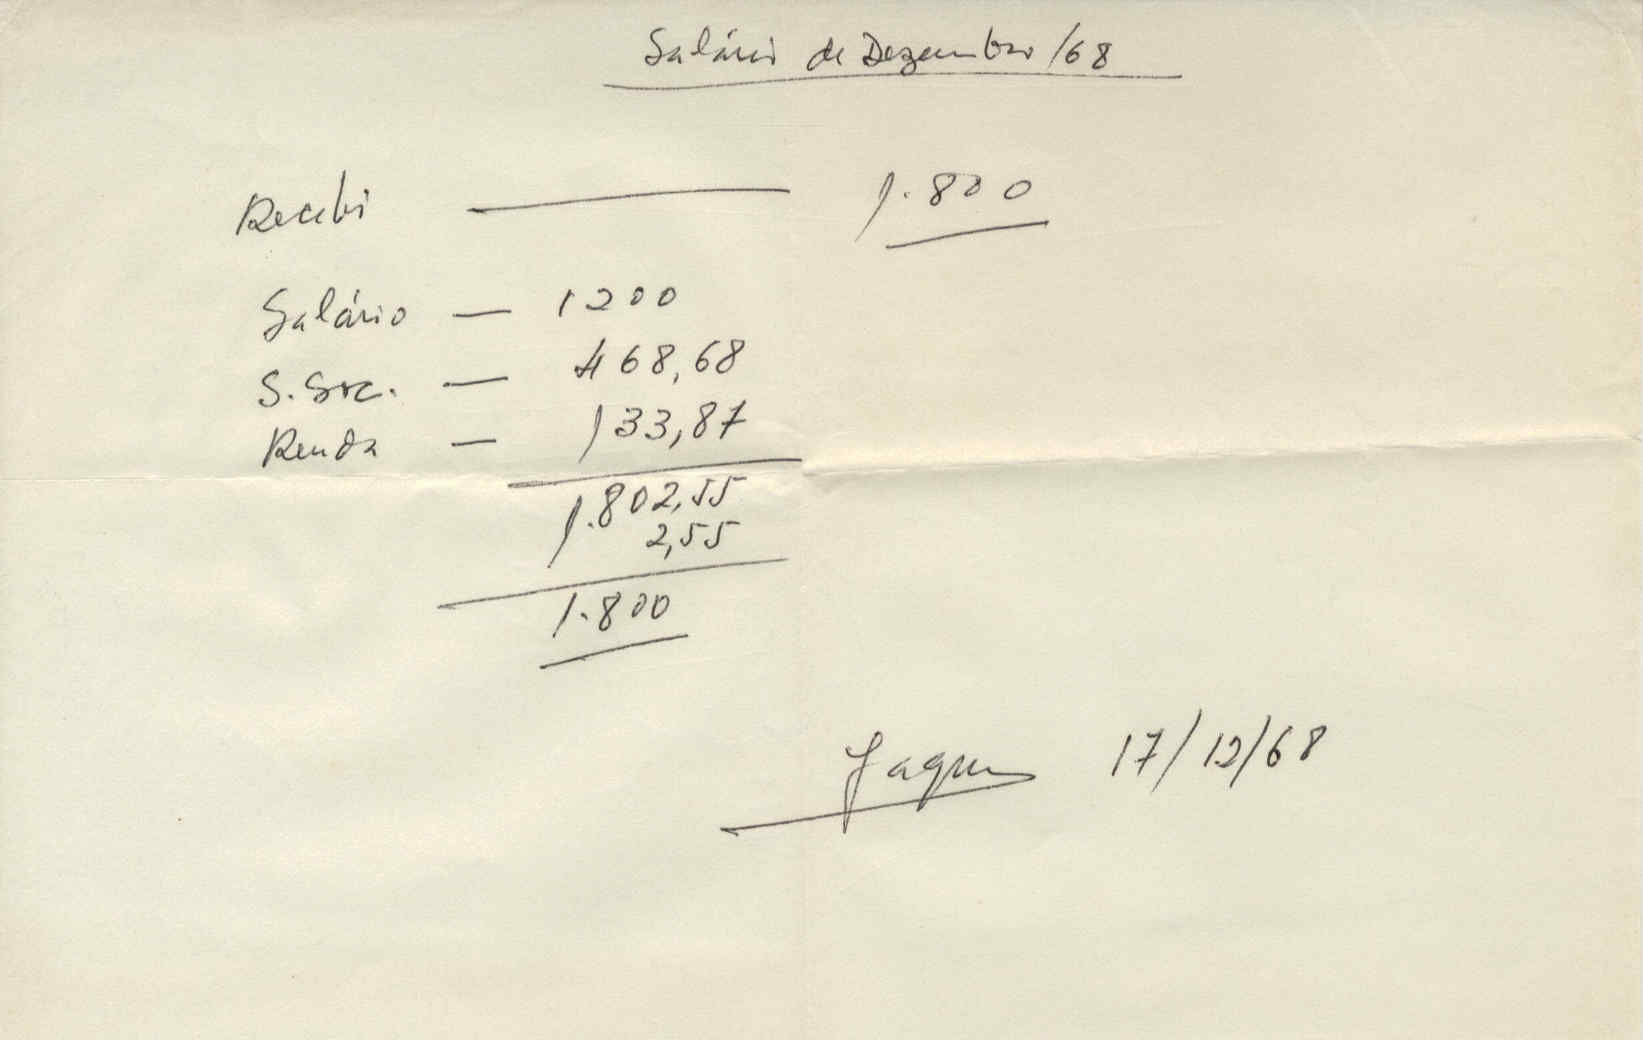 Salário de Dezembro/68
Recebi — 1.800
Salário — 1200
S. Soc. — 468,68
Renda — 133,87
1.802,55
2,55
1.800
17/12/68